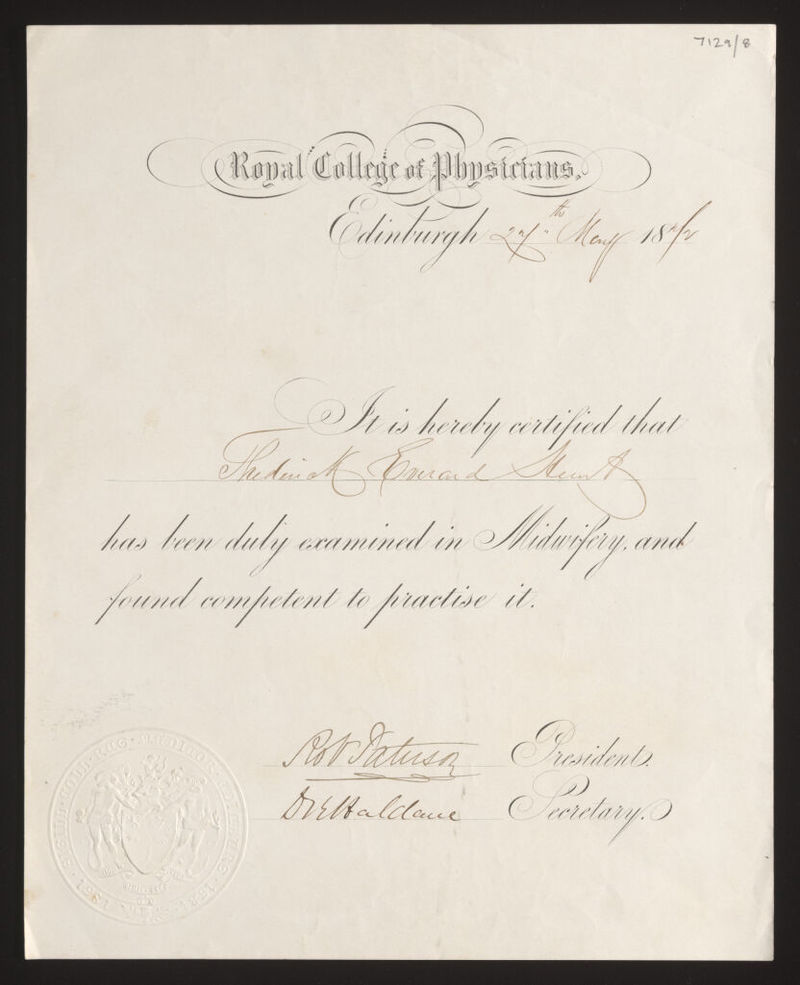 7129/8
Royal College of Physicians,
Edinburgh 27th May 18
It is hereby certified that
Frederick Everard
has been duly examined in Midwifery, and
found competent to practise it.
Robt Paterson President.
D R Haldane Secretary.